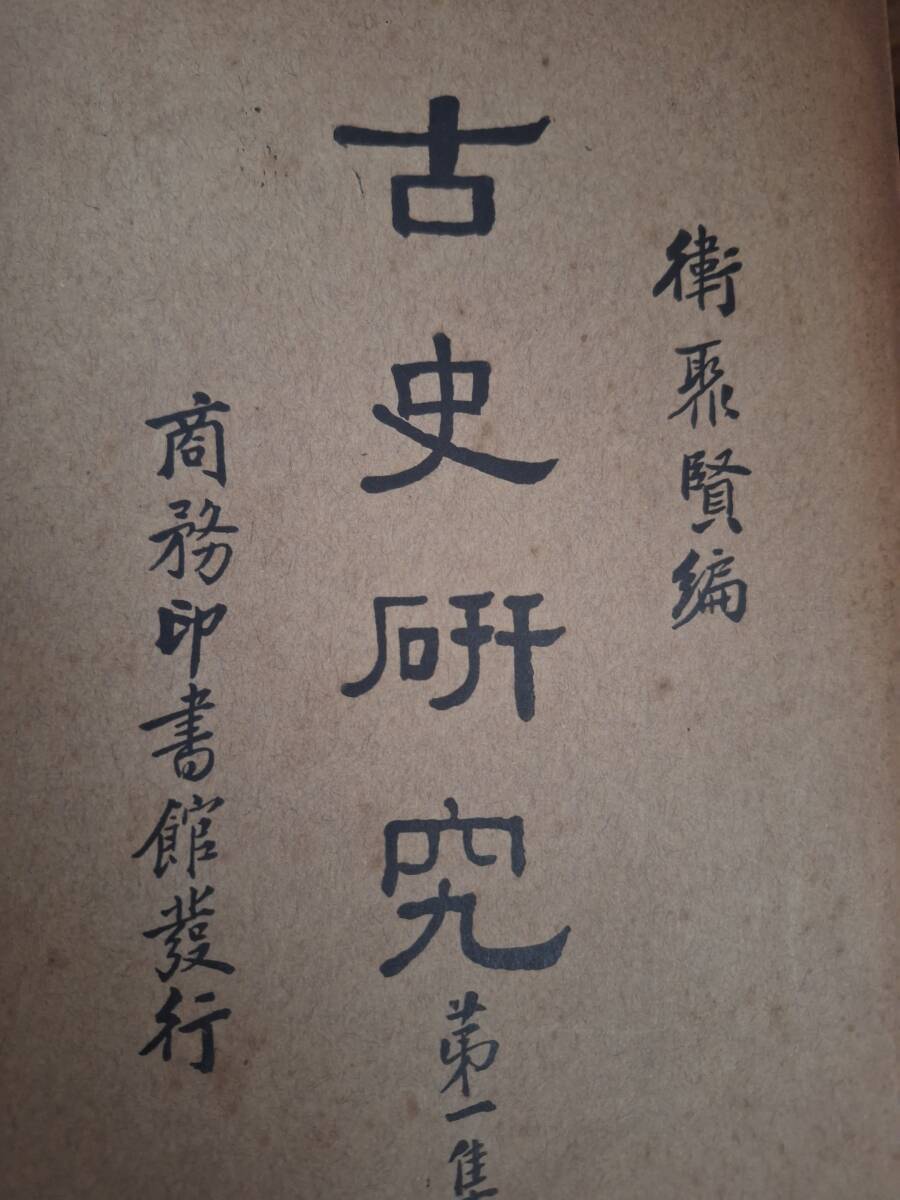 衛聚賢編
古史研究
第一集
商務印書館發行